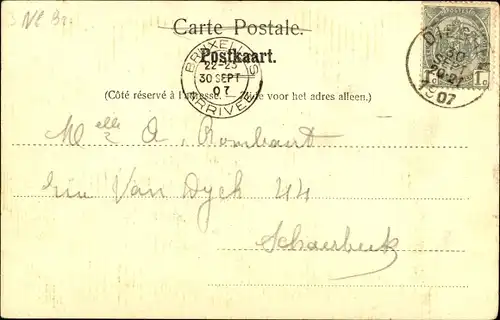 Carte Postale.
Postkaart.
(Côté réservé à l'adresse. — Zijde voor het adres alleen.)
BRUXELLES
22-23
30 SEPT
07
ARRIVÉE
30
1907
1c 1c
Melle A. Rombaert
Rue Van Dyck 44
Schaerbeek